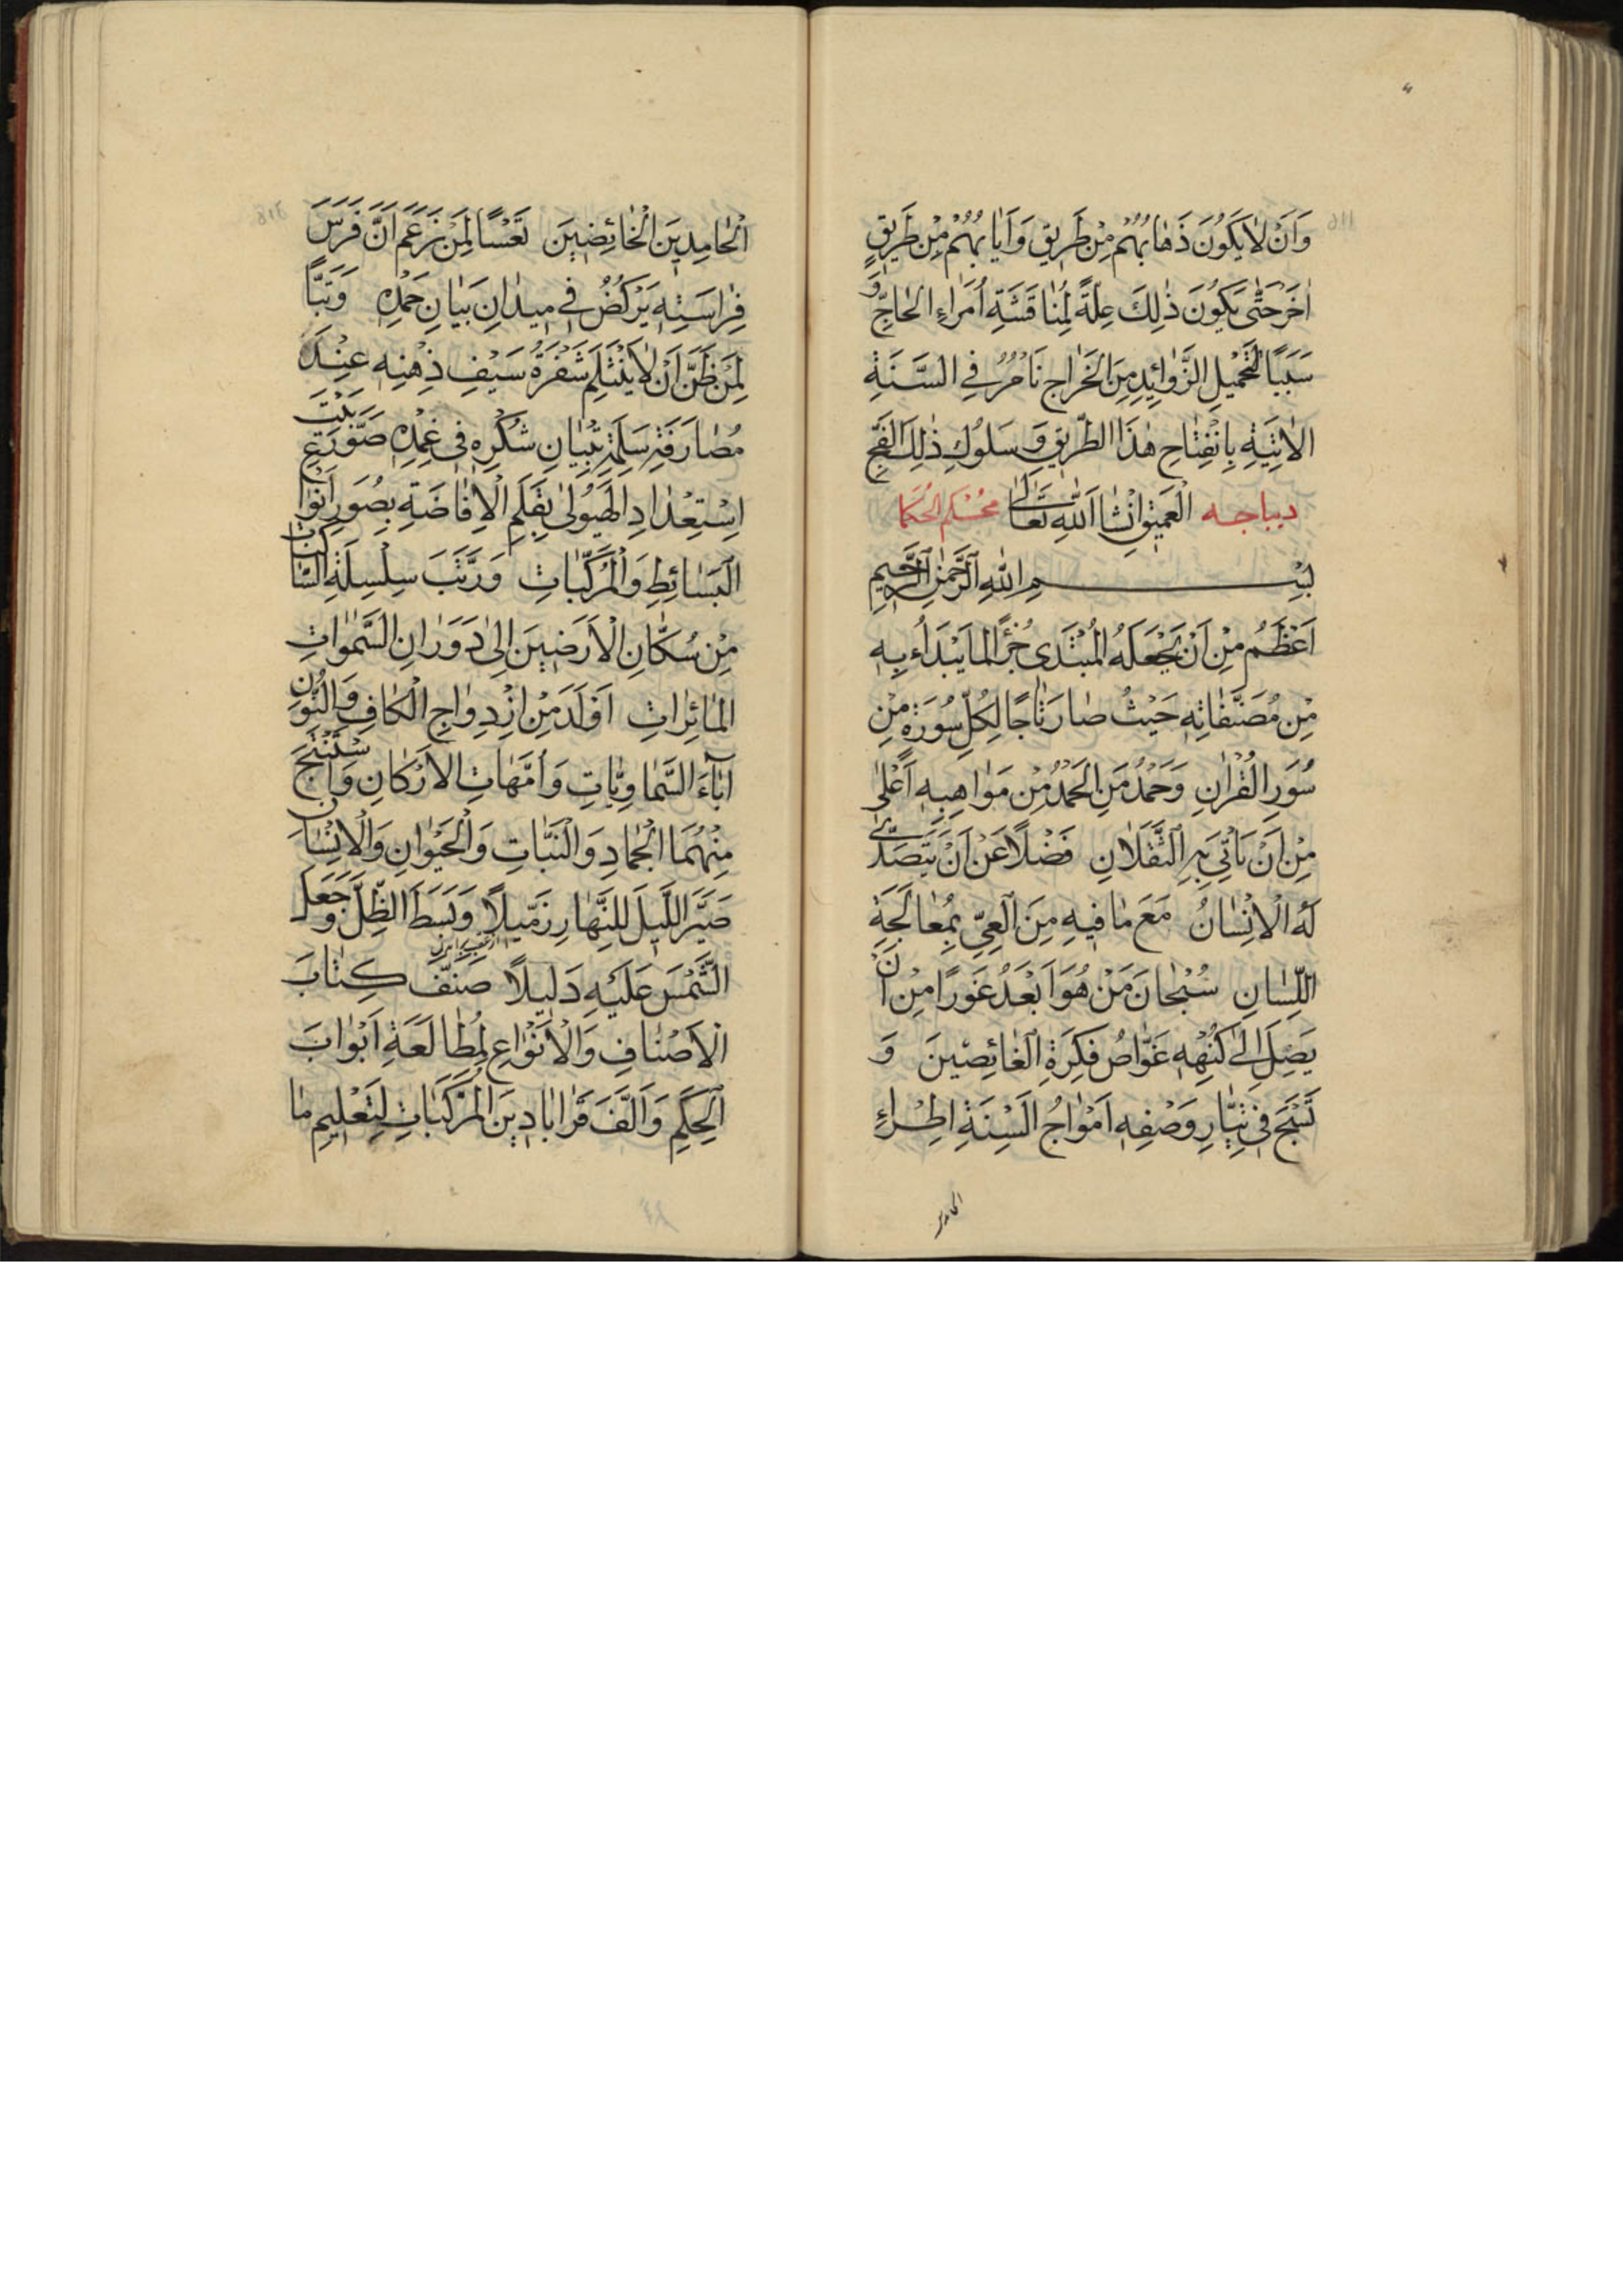 وَاَنْ لَا يَكُونَ ذَهَابُهُمْ مِنْ طَرِيقٍ وَاَيَابُهُمْ مِنْ طَرِيقٍ
اٰخَرَ حَتّٰى يَكُونَ ذٰلِكَ عِلَّةً لِمُنَاقَشَةِ اُمَرَاءِ الْحَاجِّ وَ
سَبَبًا لِتَحْمِيلِ الزَّوَائِدِ مِنَ الْخَرَاجِ نَأْمُرُ فِي السَّنَةِ
الْاٰتِيَةِ بِانْفِتَاحِ هٰذَا الطَّرِيقِ وَسُلُوكِ ذٰلِكَ الْفَجِّ
ديباجه الْعَمِيقِ اِنْشَاءَ اللّٰهُ تَعَالٰى محكم الحكما
بِسْمِ اللّٰهِ الرَّحْمٰنِ الرَّحِيمِ
اَعْظَمُ مِنْ اَنْ يَجْعَلَهُ الْمُبْتَدِى جُزْءً لِمَا يَبْدَاُ بِهِ
مِنْ مُصَنَّفَاتِهِ حَيْثُ صَارَ تَاجًا لِكُلِّ سُورَةٍ مِنْ
سُوَرِ الْقُرْاٰنِ وَحَمْدُ مَنِ الْحَمْدُ مِنْ مَوَاهِبِهِ اَعْلٰى
مِنْ اَنْ يَاْتِيَ بِهِ الثَّقَلَانِ فَضْلًا عَنْ اَنْ يَتَصَدّٰى
لَهُ الْاِنْسَانُ مَعَ مَا فِيهِ مِنَ الْعِيِّ بِمُعَالَجَةِ
اللِّسَانِ سُبْحَانَ مَنْ هُوَ اَبْعَدُ غَوْرًا مِنْ اَنْ
يَصِلَ اِلٰى كُنْهِهِ غَوَّاصُ فِكْرَةِ الْغَائِصِينَ وَ
تَسْبَحَ فِي تَيَّارِ وَصْفِهِ اَمْوَاجُ اَلْسِنَةِ اِطْرَاءِ
الحامدين
الْحَامِدِينَ الْخَائِضِينَ تَعْسًا لِمَنْ زَعَمَ اَنَّ فَرَسَ
فِرَاسَتِهِ يَرْكُضُ فِي مِيدَانِ بَيَانِ حَمْدِهِ وَتَبًّا
لِمَنْ ظَنَّ اَنْ لَا يَنْثَلِمَ شَفْرَةُ سَيْفِ ذِهْنِهِ عِنْدَ
مُصَارَفَةِ سَلَمَةِ تِبْيَانِ شُكْرِهِ فِي غِمْدِهِ صَوَّرَ بَيْتَ
اِسْتِعْدَادِ الْهَيُولٰى بِقَلَمِ الْاِفَاضَةِ بِصُوَرِ اَنْوَاعِ
الْبَسَائِطِ وَالْمُرَكَّبَاتِ وَرَتَّبَ سِلْسِلَةَ السَّاكِنَاتِ
مِنْ سُكَّانِ الْاَرَضِينَ اِلٰى دَوَرَانِ السَّمٰوَاتِ
الْمَائِرَاتِ اَوْلَدَ مِنْ اِزْدِوَاجِ الْكَافِ وَالنُّونِ
اٰبَاءَ السَّمَاوِيَّاتِ وَاُمَّهَاتِ الْاَرْكَانِ وَاسْتَنْتَجَ
مِنْهُمَا الْجَمَادَ وَالنَّبَاتِ وَالْحَيَوَانِ وَالْاِنْسَانَ
صَيَّرَ اللَّيْلَ لِلنَّهَارِ زَمِيلًا وَبَسَطَ الظِّلَّ وَجَعَلَ
الشَّمْسَ عَلَيْهِ دَلِيلًا صَنَّفَ كِتَابَ
الْاَصْنَافِ وَالْاَنْوَاعِ لِمُطَالَعَةِ اَبْوَابَ
الْحِكَمِ وَاَلَّفَ قَرَابَادِينَ الْمُرَكَّبَاتِ لِتَعْلِيمِ مَا